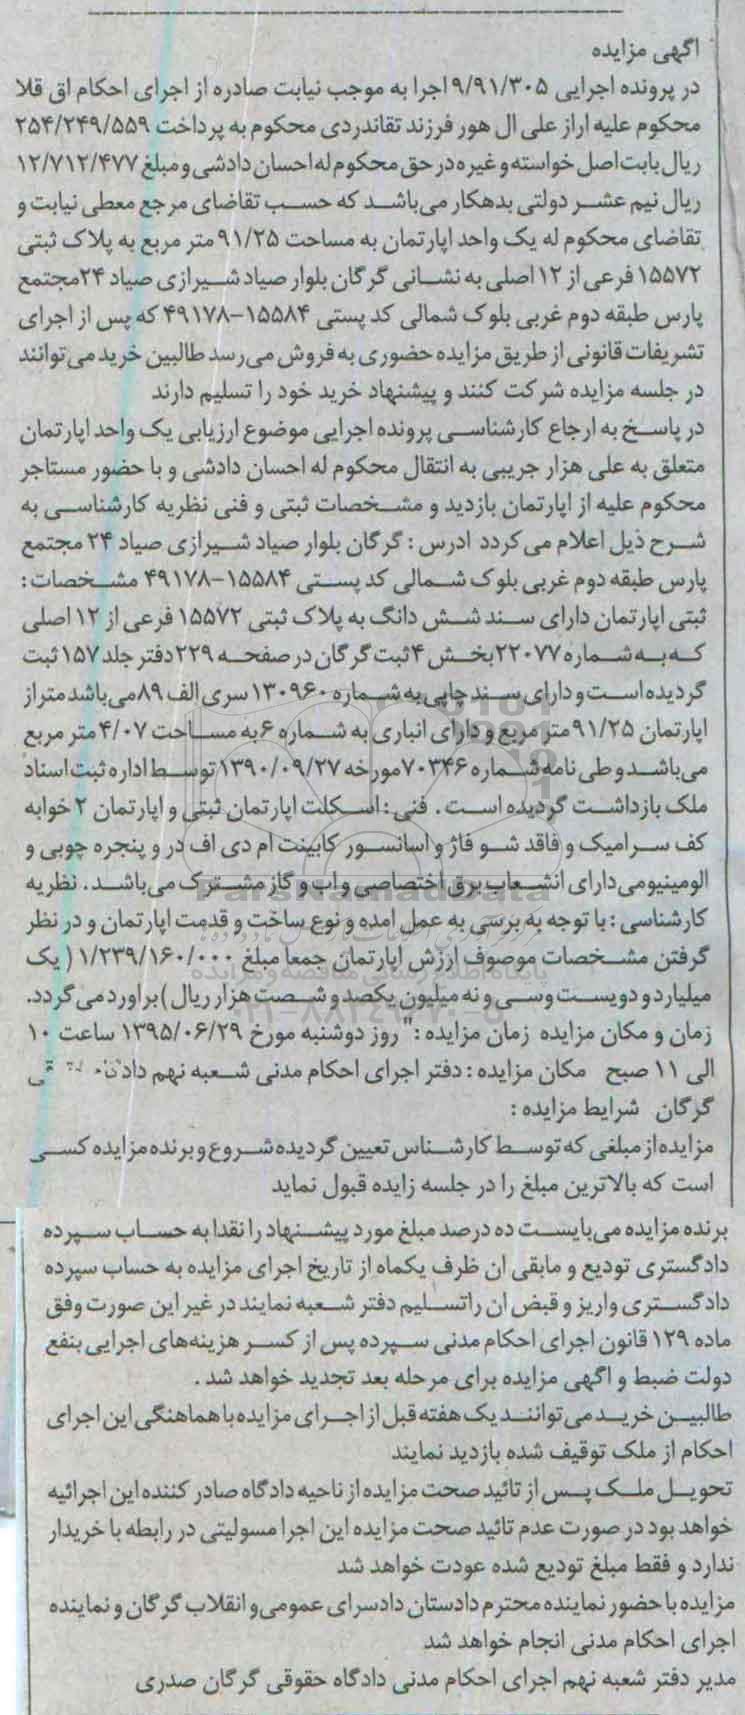 اگهی مزایده
در پرونده اجرایی ۹/۹۱/۳۰۵ اجرا به موجب نیابت صادره از اجرای احکام اق قلا
محکوم علیه اراز علی ال هور فرزند تقاندردی محکوم به پرداخت ۲۵۴/۲۴۹/۵۵۹
ریال بابت اصل خواسته و غیره در حق محکوم له احسان دادشی و مبلغ ۱۲/۷۱۲/۴۷۷
ریال نیم عشر دولتی بدهکار می‌باشد که حسب تقاضای مرجع معطی نیابت و
تقاضای محکوم له یک واحد اپارتمان به مساحت ۹۱/۲۵ متر مربع به پلاک ثبتی
۱۵۵۷۲ فرعی از ۱۲ اصلی به نشانی گرگان بلوار صیاد شیرازی صیاد ۲۴ مجتمع
پارس طبقه دوم غربی بلوک شمالی کد پستی ۱۵۵۸۴-۴۹۱۷۸ که پس از اجرای
تشریفات قانونی از طریق مزایده حضوری به فروش می‌رسد طالبین خرید می‌توانند
در جلسه مزایده شرکت کنند و پیشنهاد خرید خود را تسلیم دارند
در پاسخ به ارجاع کارشناسی پرونده اجرایی موضوع ارزیابی یک واحد اپارتمان
متعلق به علی هزار جریبی به انتقال محکوم له احسان دادشی و با حضور مستاجر
محکوم علیه از اپارتمان بازدید و مشخصات ثبتی و فنی نظریه کارشناسی به
شرح ذیل اعلام می‌گردد ادرس : گرگان بلوار صیاد شیرازی صیاد ۲۴ مجتمع
پارس طبقه دوم غربی بلوک شمالی کد پستی ۱۵۵۸۴-۴۹۱۷۸ مشخصات :
ثبتی اپارتمان دارای سند شش دانگ به پلاک ثبتی ۱۵۵۷۲ فرعی از ۱۲ اصلی
که به شماره ۲۲۰۷۷ بخش ۴ ثبت گرگان در صفحه ۲۲۹ دفتر جلد ۱۵۷ ثبت
گردیده است و دارای سند چاپی به شماره ۱۳۰۹۶۰ سری الف ۸۹ می‌باشد متراز
اپارتمان ۹۱/۲۵ متر مربع و دارای انباری به شماره ۶ به مساحت ۴/۰۷ متر مربع
می‌باشد و طی نامه شماره ۷۰۳۴۶ مورخه ۱۳۹۰/۰۹/۲۷ توسط اداره ثبت اسناد
ملک بازداشت گردیده است . فنی : اسکلت اپارتمان ثبتی و اپارتمان ۲ خوابه
کف سرامیک و فاقد شو فاژ و اسانسور کابینت ام دی اف در و پنجره چوبی و
الومینیومی دارای انشعاب برق اختصاصی و اب و گاز مشترک می‌باشد . نظریه
کارشناسی : با توجه به برسی به عمل امده و نوع ساخت و قدمت اپارتمان و در نظر
گرفتن مشخصات موصوف ارزش اپارتمان جمعا مبلغ ۱/۲۳۹/۱۶۰/۰۰۰ ( یک
میلیارد و دویست و سی و نه میلیون یکصد و شصت هزار ریال ) براورد می‌گردد.
زمان و مکان مزایده زمان مزایده :" روز دوشنبه مورخ ۱۳۹۵/۰۶/۲۹ ساعت ۱۰
الی ۱۱ صبح مکان مزایده : دفتر اجرای احکام مدنی شعبه نهم
گرگان شرایط مزایده :
مزایده از مبلغی که توسط کارشناس تعیین گردیده شروع و برنده مزایده کسی
است که بالاترین مبلغ را در جلسه زایده قبول نماید
برنده مزایده می‌بایست ده درصد مبلغ مورد پیشنهاد را نقدا به حساب سپرده
دادگستری تودیع و مابقی ان ظرف یکماه از تاریخ اجرای مزایده به حساب سپرده
دادگستری واریز و قبض ان را تسلیم دفتر شعبه نمایند در غیر این صورت وفق
ماده ۱۲۹ قانون اجرای احکام مدنی سپرده پس از کسر هزینه‌های اجرایی بنفع
دولت ضبط و اگهی مزایده برای مرحله بعد تجدید خواهد شد .
طالبین خرید می‌توانند یک هفته قبل از اجرای مزایده با هماهنگی این اجرای
احکام از ملک توقیف شده بازدید نمایند
تحویل ملک پس از تائید صحت مزایده از ناحیه دادگاه صادر کننده این اجرائیه
خواهد بود در صورت عدم تائید صحت مزایده این اجرا مسولیتی در رابطه با خریدار
ندارد و فقط مبلغ تودیع شده عودت خواهد شد
مزایده با حضور نماینده محترم دادستان دادسرای عمومی و انقلاب گرگان و نماینده
اجرای احکام مدنی انجام خواهد شد
مدیر دفتر شعبه نهم اجرای احکام مدنی دادگاه حقوقی گرگان صدری
ParsNamadData
پایگاه اطلاع رسانی مناقصه و مزایده